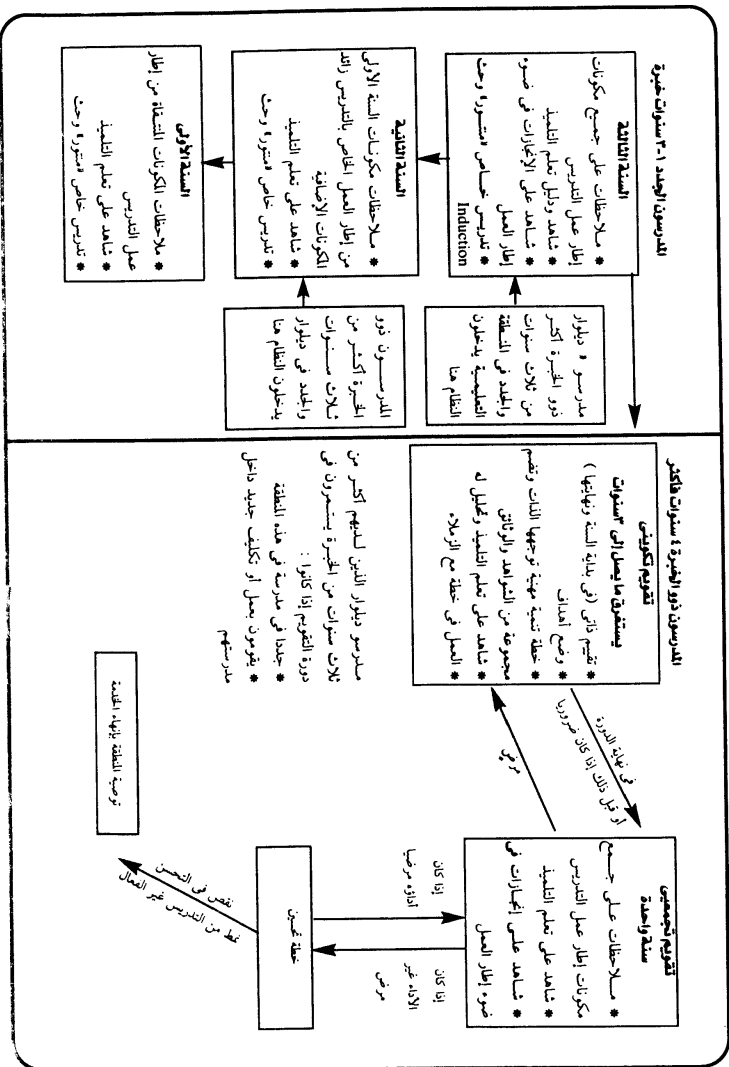 المدرسون الجدد ١-٣ سنوات خبرة
السنة الأولى
* ملاحظات المكونات المنتقاة من إطار
عمل التدريس
* شاهد على تعلم التلميذ
* تدريس خاص «منتور» وحث
السنة الثانية
* ملاحظات مكونات السنة الأولى
من إطار العمل الخاص بالتدريس زائد
المكونات الإضافية
* شاهد على تعلم التلميذ
* تدريس خاص «منتور» وحث
السنة الثالثة
* ملاحظات على جميع مكونات
إطار عمل التدريس
* شاهد ودليل تعلم التلميذ
* شاهد على الإنجازات فى ضوء
إطار العمل
* تدريس خاص «منتور» وحث
Induction
المدرسون ذوو
الخبرة أكثر من
ثلاث سنوات
والجدد فى ديلوار
يدخلون النظام هنا
مدرسو « ديلوار
ذوو الخبرة أكثر
من ثلاث سنوات
والجدد فى المنطقة
التعليمية يدخلون
النظام هنا
المدرسون ذوو الخبرة ٤ سنوات فأكثر
تقويم تكوينى
يستغرق ما يصل إلى ٣ سنوات
* تقييم ذاتى (فى بداية السنة ونهايتها )
* وضع أهداف
* خطة تنمية مهنية توجهها الذات وتضم
مجموعة من الشواهد والوثائق
* شاهد على تعلم التلميذ وتحليل له
* العمل فى خطة مع الزملاء
مدرسو ديلوار الذين لديهم أكثر من
ثلاث سنوات من الخبرة يستمرون فى
دورة التقويم إذا كانوا :
* جددا فى مدرسة فى هذه المنطقة
* يقومون بعمل أو تكليف جديد داخل
مدرستهم
فى نهاية الدورة
أو قبل ذلك إذا كان ضروريا
مرض
تقويم تجميعى
سنة واحدة
* ملاحظات على جمع
مكونات إطار عمل التدريس
* شاهد على تعلم التلميذ
* شاهد على إنجازات فى
ضوء إطار العمل
إذا كان
أداؤه مرضيا
إذا كان
الأداء غير
مرض
خطة تحسين
نقص فى التحسن
نمط من التدريس غير الفعال
توصية المنطقة بإنهاء الخدمة